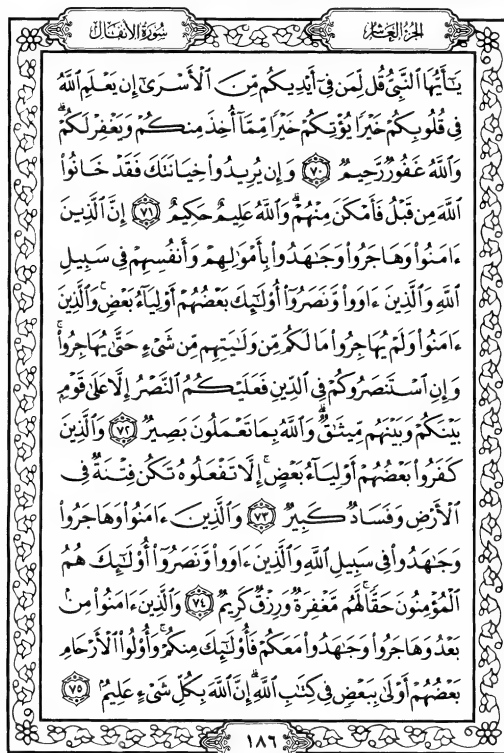 سُورَةُ الأَنفَال
الجُزءُ العَاشِرُ
يَٰٓأَيُّهَا ٱلنَّبِىُّ قُل لِّمَن فِىٓ أَيْدِيكُم مِّنَ ٱلْأَسْرَىٰٓ إِن يَعْلَمِ ٱللَّهُ
فِى قُلُوبِكُمْ خَيْرًا يُؤْتِكُمْ خَيْرًا مِّمَّآ أُخِذَ مِنكُمْ وَيَغْفِرْ لَكُمْ ۗ
وَٱللَّهُ غَفُورٌ رَّحِيمٌ ﴿٧٠﴾ وَإِن يُرِيدُوا۟ خِيَانَتَكَ فَقَدْ خَانُوا۟
ٱللَّهَ مِن قَبْلُ فَأَمْكَنَ مِنْهُمْ ۗ وَٱللَّهُ عَلِيمٌ حَكِيمٌ ﴿٧١﴾ إِنَّ ٱلَّذِينَ
ءَامَنُوا۟ وَهَاجَرُوا۟ وَجَٰهَدُوا۟ بِأَمْوَٰلِهِمْ وَأَنفُسِهِمْ فِى سَبِيلِ
ٱللَّهِ وَٱلَّذِينَ ءَاوَوا۟ وَّنَصَرُوٓا۟ أُو۟لَٰٓئِكَ بَعْضُهُمْ أَوْلِيَآءُ بَعْضٍ ۚ وَٱلَّذِينَ
ءَامَنُوا۟ وَلَمْ يُهَاجِرُوا۟ مَا لَكُم مِّن وَلَٰيَتِهِم مِّن شَىْءٍ حَتَّىٰ يُهَاجِرُوا۟ ۚ
وَإِنِ ٱسْتَنصَرُوكُمْ فِى ٱلدِّينِ فَعَلَيْكُمُ ٱلنَّصْرُ إِلَّا عَلَىٰ قَوْمٍۭ
بَيْنَكُمْ وَبَيْنَهُم مِّيثَٰقٌ ۗ وَٱللَّهُ بِمَا تَعْمَلُونَ بَصِيرٌ ﴿٧٢﴾ وَٱلَّذِينَ
كَفَرُوا۟ بَعْضُهُمْ أَوْلِيَآءُ بَعْضٍ ۚ إِلَّا تَفْعَلُوهُ تَكُن فِتْنَةٌ فِى
ٱلْأَرْضِ وَفَسَادٌ كَبِيرٌ ﴿٧٣﴾ وَٱلَّذِينَ ءَامَنُوا۟ وَهَاجَرُوا۟
وَجَٰهَدُوا۟ فِى سَبِيلِ ٱللَّهِ وَٱلَّذِينَ ءَاوَوا۟ وَّنَصَرُوٓا۟ أُو۟لَٰٓئِكَ هُمُ
ٱلْمُؤْمِنُونَ حَقًّا ۚ لَّهُم مَّغْفِرَةٌ وَرِزْقٌ كَرِيمٌ ﴿٧٤﴾ وَٱلَّذِينَ ءَامَنُوا۟ مِنۢ
بَعْدُ وَهَاجَرُوا۟ وَجَٰهَدُوا۟ مَعَكُمْ فَأُو۟لَٰٓئِكَ مِنكُمْ ۚ وَأُو۟لُوا۟ ٱلْأَرْحَامِ
بَعْضُهُمْ أَوْلَىٰ بِبَعْضٍ فِى كِتَٰبِ ٱللَّهِ ۗ إِنَّ ٱللَّهَ بِكُلِّ شَىْءٍ عَلِيمٌۢ ﴿٧٥﴾
١٨٦